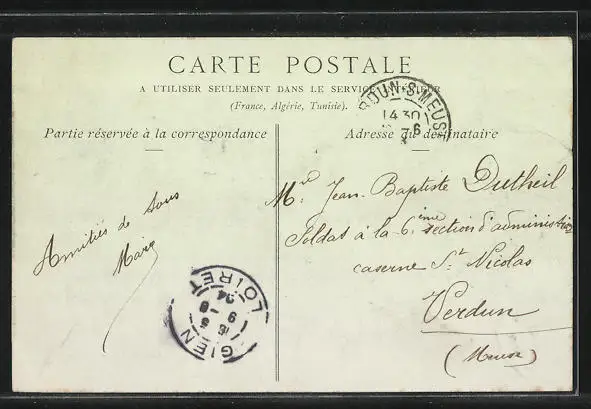 CARTE POSTALE
A UTILISER SEULEMENT DANS LE SERVICE INTERIEUR
(France, Algérie, Tunisie).
Partie réservée à la correspondance
Adresse du destinataire
DUN-S-MEUSE
14 30
6
Amitiés de tous
Mr Jean-Baptiste Dutheil
Soldat à la 6ième section d'administ
caserne St Nicolas
Verdun
(Meuse)
GIEN
LOIRET